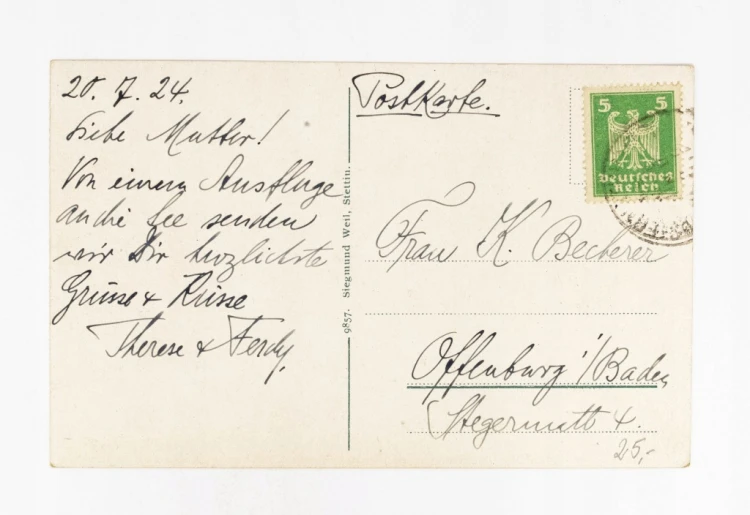 20. 7. 24.
Liebe Mutter!
Von einem Ausfluge
an die See senden
wir Dir herzlichste
Grüsse & Küsse
Therese & Ferdy.
9857. Siegmund Weil, Stettin.
Postkarte.
5 5
Deutsches
Reich
Frau K. Becherer
Offenburg i/Baden
Stegermatt 4.
25,-